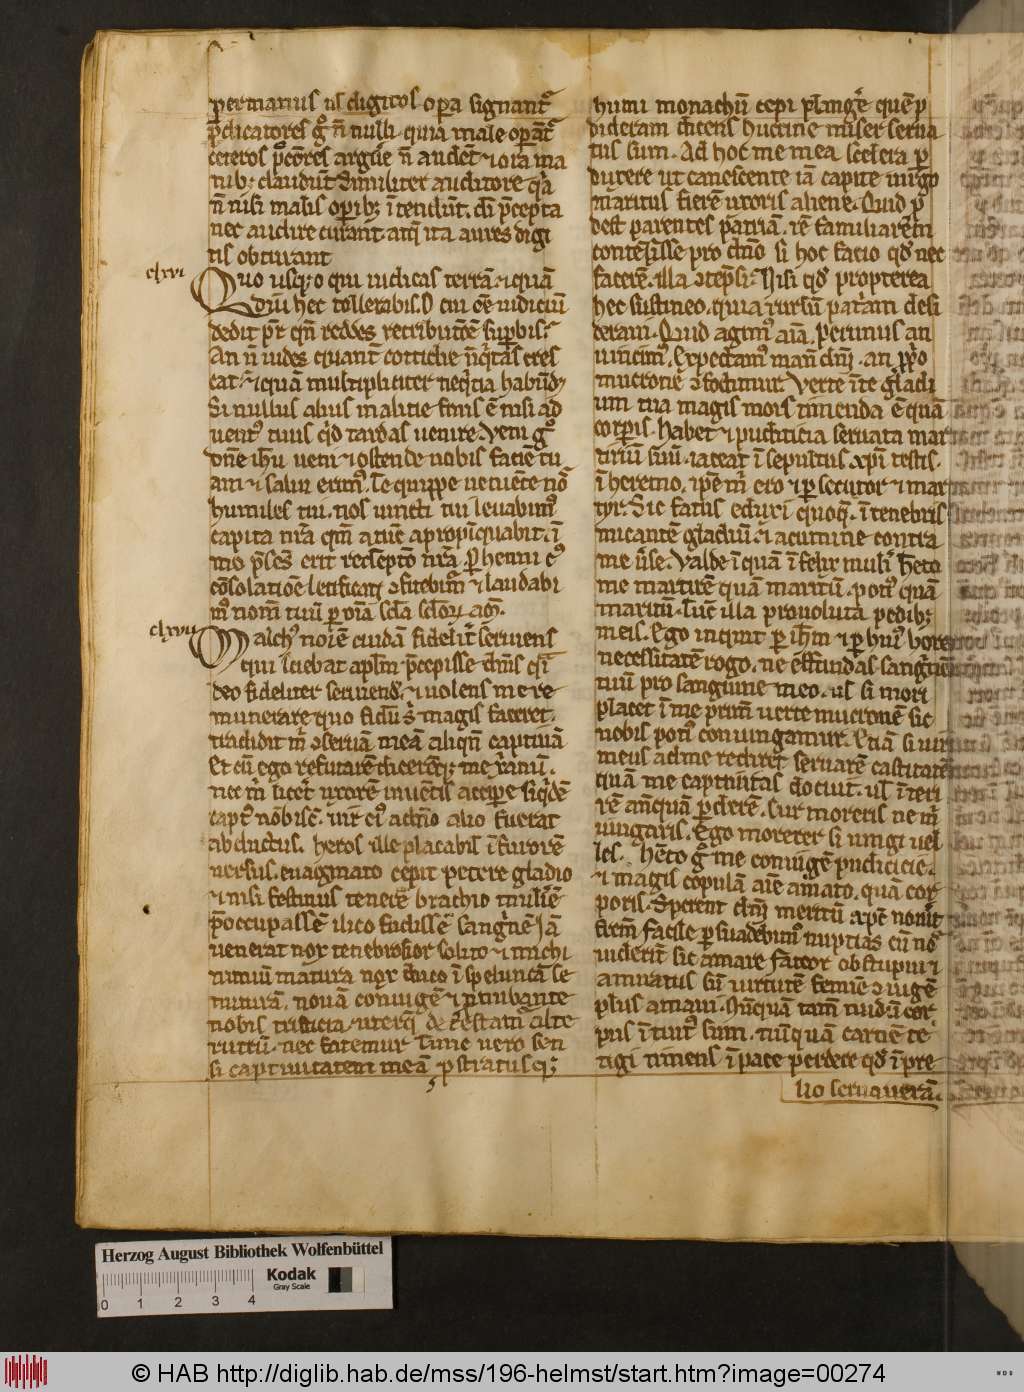 per manus uł digitos opera signantr
p̄dicatores gͦ n̄ nulli quia male opant
ceteros pctores arguere n̄ audēt ⁊ ora ma
nibꝫ claudūt Similiter auditores q̄a
n̄ nisi malis opibꝫ ītendūt. dni p̄cepta
nec audire curant atqꝫ ita aures digi
tis obturant
clxvi
Quo usqꝫ o qui iudicas terrā ⁊ quā
diu hec tollerabis. O cui oē iudiciū
dedit pr̄ qn̄ reddes retributōem supbis
An n̄ uides quant cottidie
⁊ quā multipliciter habūdꝫ
Si nullus alius malitie finis ē nisi ad
uentꝰ tuus qͥd tardas uenire. Veni gͦ
dn̄e ihu ueni ⁊ ostende nobis faciē tu
am ⁊ salui erimꝰ. Te quippe ueniente nͦ
humiles tui. nos uincti tui leuabimꝰ
capita nr̄a qm̄ apropīquabit. ī
erit redēptō nr̄a
letificati ⁊ laudabi
mꝰ nom̄ tuū p oīa sclā sclōꝝ am̄.
clxvii
Malchꝰ noīe cuidā fidelit̄ seruiens
qui sciebat aplm̄ p̄cepisse dn̄is qͣsi
deo fideliter seruiendū. ⁊ uolens me re
munerare quo fidū sͥ magis faceret.
tradidit m̄ ꝯseruā meā aliqn̄ captiuā
Et cū ego refutarē dicerēqꝫ me xͥanū.
nec m̄ licet uxorē uiuentis accipe siqͥdē
captꝰ nobiscū. uir eiꝰ a dn̄o alio fuerat
abductus. heros ille placabił ī furorē
uersus. euaginato cepit petere gladio
⁊ nisi festinus tenere brachio mulierē
p̄occupassē ilico fudissē sangͥnē Iā
uenerat nox tenebrosior solito ⁊ michi
nimiū matura nox duco ī speluncā se
mirutā. nouā coniugē ⁊ p̱nubante
nobis tristicia. uterqꝫ detestam̄ alte
rutrū. nec fatemur Tunc uero sen
si captiuitatem meā ꝓstratusqꝫ
humi monachū cepi plangͤe quē p
dideram dicens huccine miser serua
tus sum. Ad hoc me mea scelera p
duxere ut canescente iā capite uirgo
maritus fierē uxoris aliene. Quid p̄
dest parentes patriā. rē familiarē
contēpsisse pro dn̄o si hoc facio qd nec
facerē. illa ꝯtēpsi. Nisi qd propterea
hec sustineo. quia rursū patͥam desi
derani. Quid agimꝰ aīa. perimus an
uincimꝰ. Expectamꝰ manū dn̄i. an pp̄o
mucrone ꝯfodimur Verte ī te gladi
um tua magis mors timenda ē quā
corpis. Habet ⁊ pudicicia seruata mar
tiriū suū. iaceat ī sepultus xp̄i testis.
ī heremo. ipe m̄ ero ⁊ psecutor ⁊ mar
tyr. Sic fatus eduxi quoqꝫ ī tenebris
micantē gladiū. ⁊ acumine contra
me ūso. Vale īquā īfelix mulier. Heto
me martirē quā maritū. potiꝰ quā
maritū. Tūc illa prouoluta pedibꝫ
meis. Ego inquit p ihm ⁊ p huiꝰ hore
necessitatē rogo. ne effundas sanguinē
tuū pro sanguine meo. uł si mori
placet ī me prim̄ uerte mucronē sic
nobis potiꝰ coniungamur. Etiā si uir
meus ad me rediret seruarē castitatē
quā me captiuitas docuit. uł īteri
rē anquā pderē. Cur moreris ne m̄
iungaris. Ego morerer si iungi uel
les. hēto gͦ me coniugē pudicicie.
⁊ magis copulā aīe amato. quā cor
poris. Sperent dn̄i maritū xpc̄ nouit
frēm facile psuadebimꝰ nuptias cū nͦ
uiderīt sic amare fateor obstupui ⁊
amiratus sū uirtutē femine ꝯiugē
plus amaui. Nūquā tam̄ nudū cor
pus ītuitꝰ sum. nūquā carnē te
tigi timens ī pace perdere qd ī pre
lio seruauerā.
Herzog August Bibliothek Wolfenbüttel
Kodak
Gray Scale
0 1 2 3 4
© HAB http://diglib.hab.de/mss/196-helmst/start.htm?image=00274